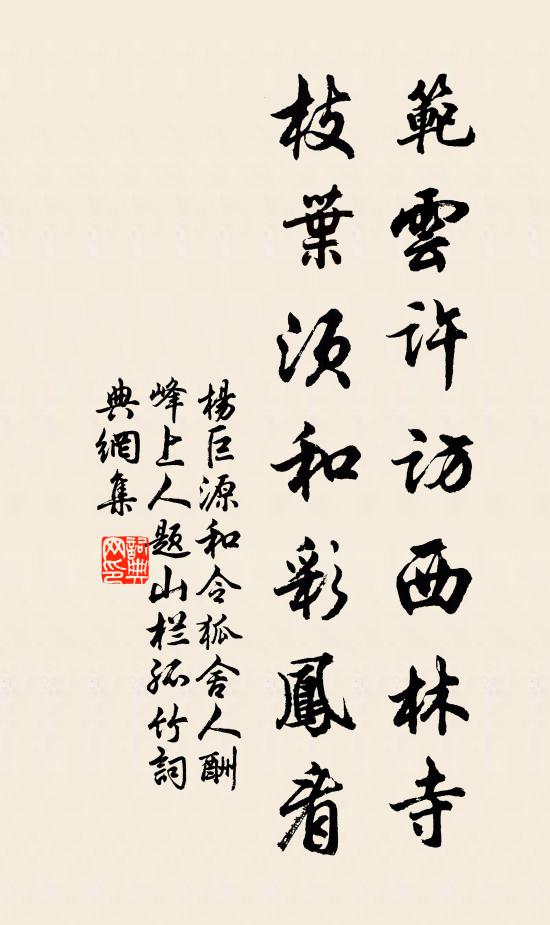 範雲許訪西林寺
枝葉須和彩鳳看
楊巨源和令狐舍人酬
峰上人題山栏孤竹詞
典網集
詞典網印